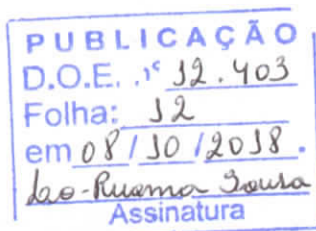 PUBLICAÇÃO
D.O.E. .nº 12.403
Folha: 12
em 08/10/2018.
Sousa
Assinatura